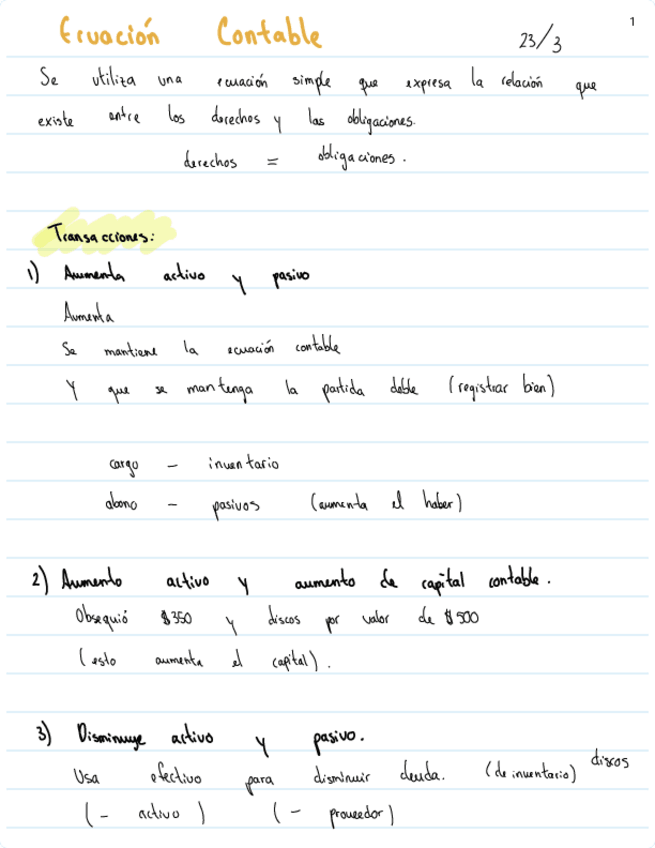 Ecuación Contable 23/3 1
Se utiliza una ecuación simple que expresa la relación que
existe entre los derechos y las obligaciones.
derechos = obligaciones.
Transacciones:
1) Aumenta activo y pasivo
Aumenta
Se mantiene la ecuación contable
Y que se mantenga la partida doble (registrar bien)
cargo - inventario
abono - pasivos (aumenta el haber)
2) Aumento activo y aumento de capital contable.
Obsequió $350 y discos por valor de $500
(esto aumenta el capital).
3) Disminuye activo y pasivo.
Usa efectivo para disminuir deuda. (de inventario) discos
(- activo) (- proveedor)